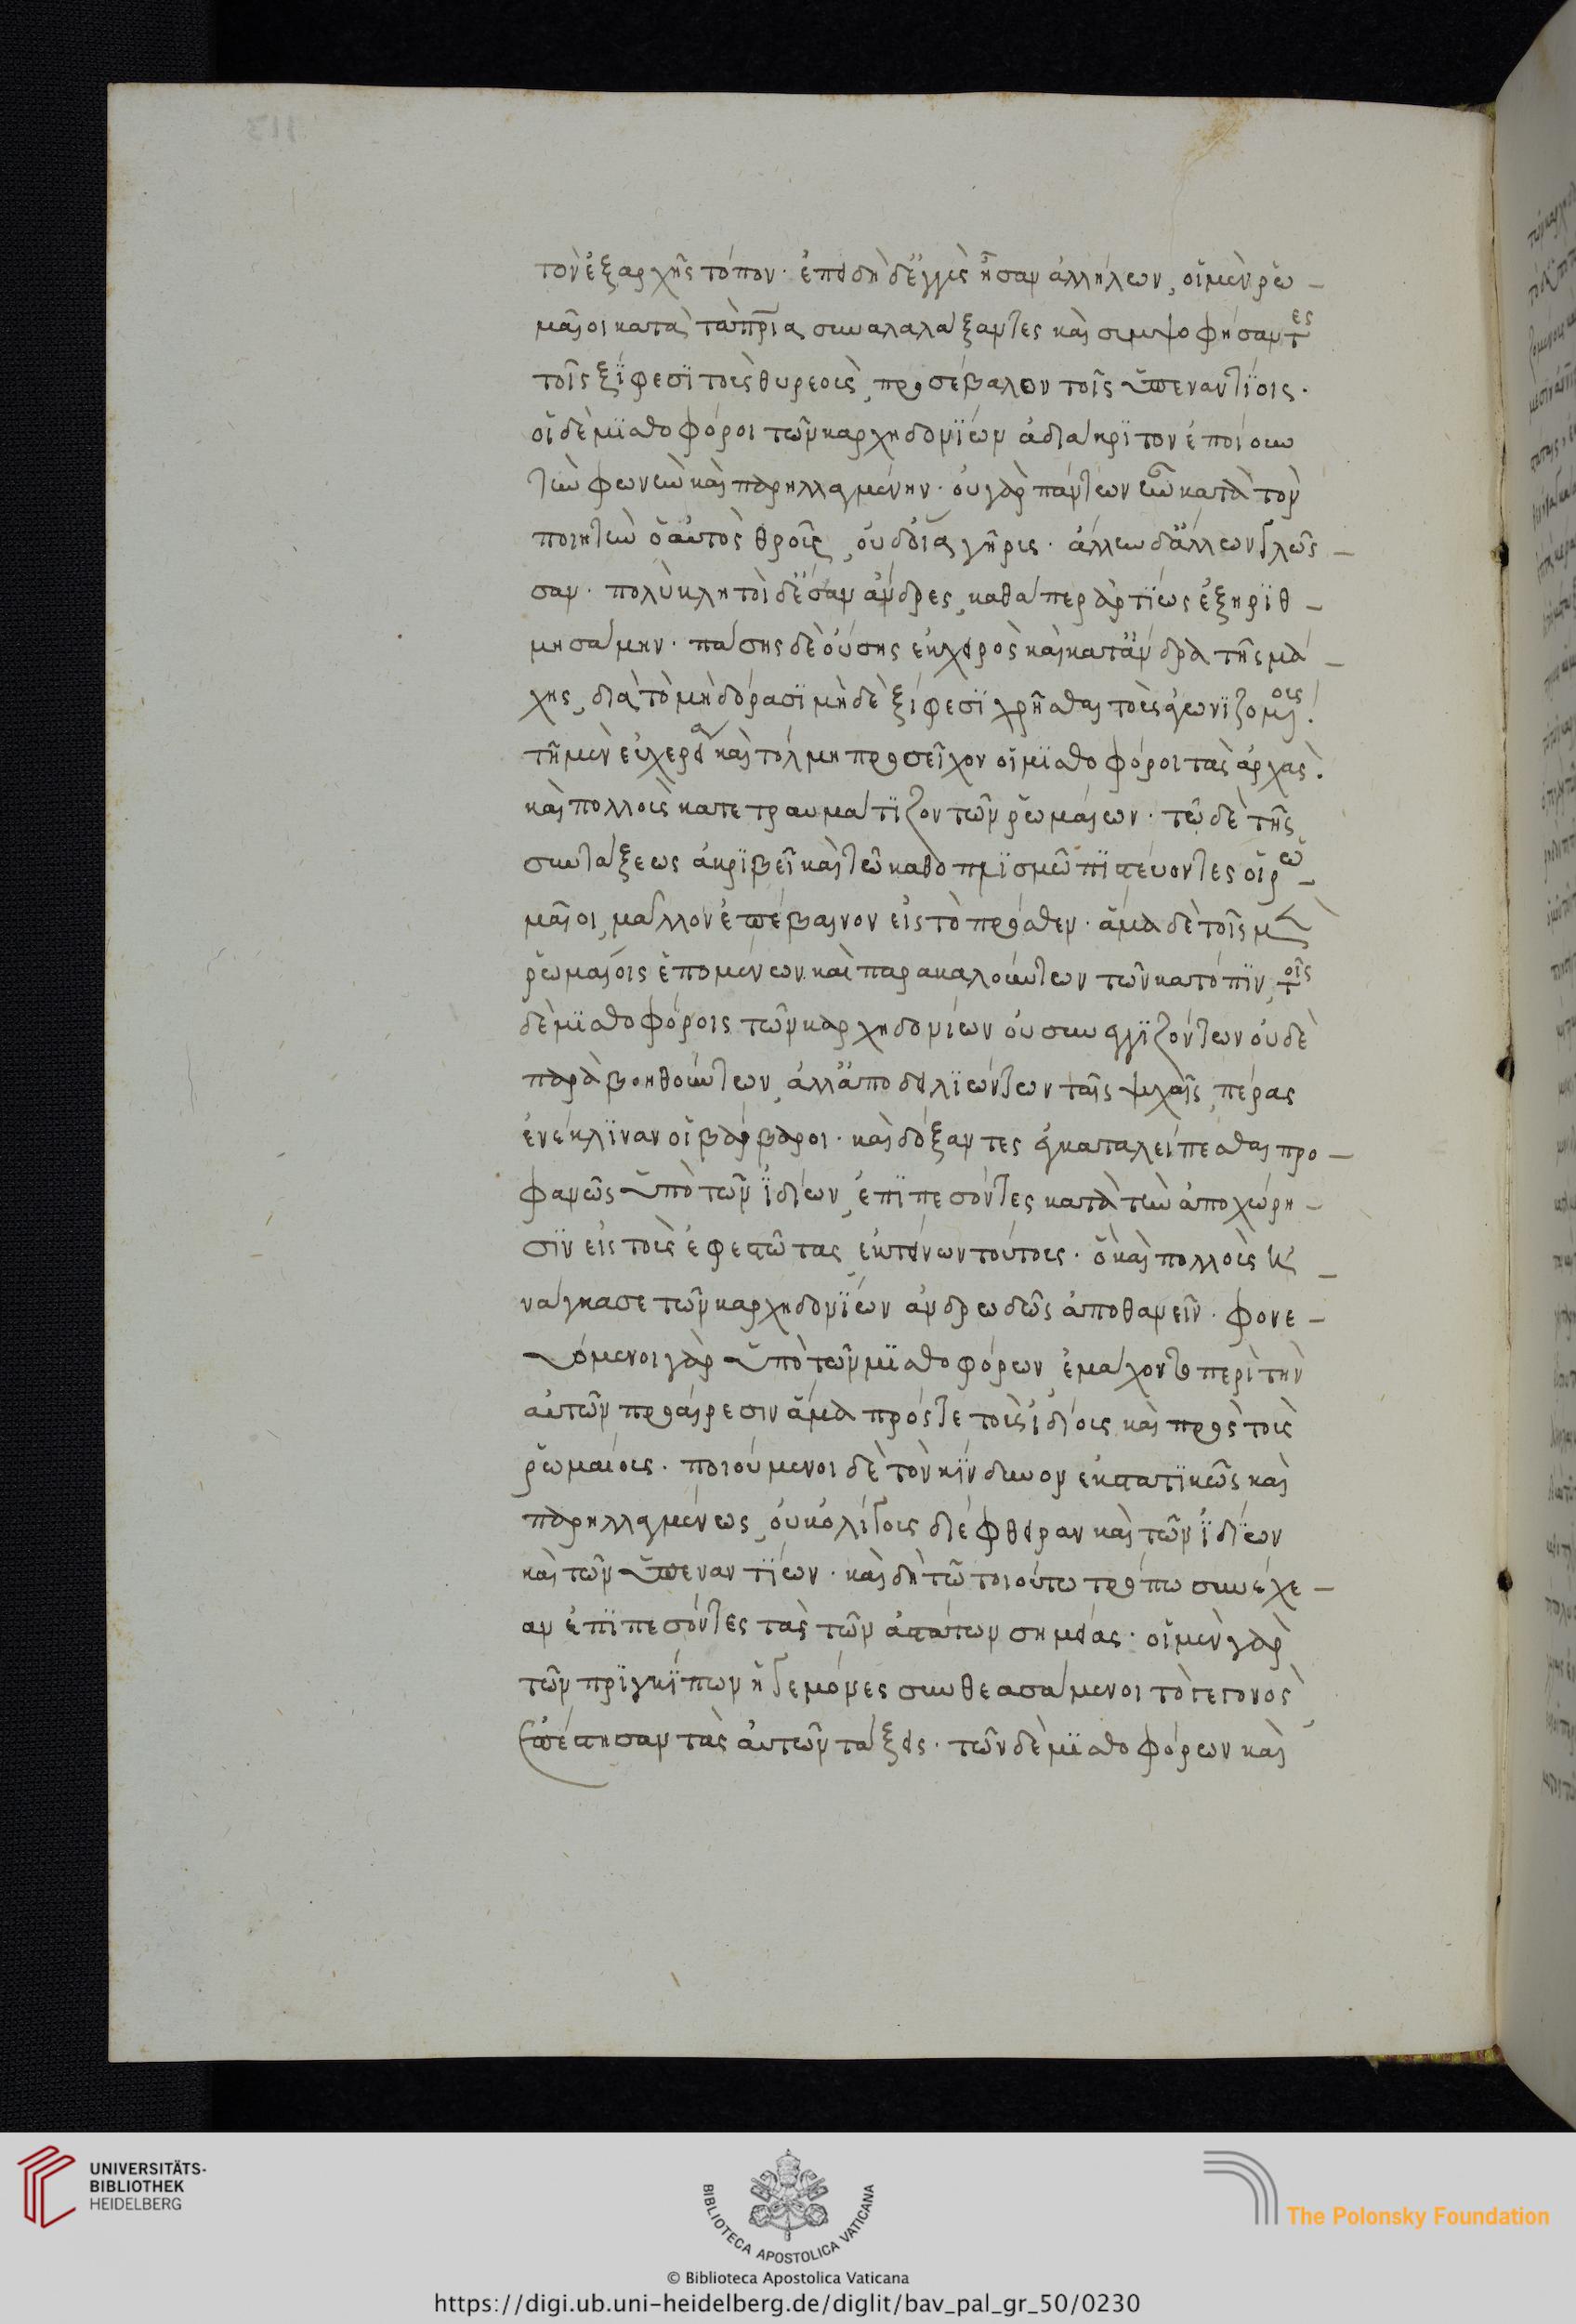 τὸν ἐξ ἀρχῆς τόπον· ἐπειδὴ δ' ἐγγὺς ἦσαν ἀλλήλων, οἱ μὲν ῥω-
μαῖοι κατὰ τὰ πρια συναλαλάξαντες καὶ συμψοφήσαντες
τοῖς ξίφεσι τοὺς θυρεοὺς, προσέβαλον τοῖς ὑπεναντίοις.
οἱ δὲ μισθοφόροι τῶν καρχηδονίων ἀδιάκριτον ἐποίουν
τὴν φωνὴν καὶ παρηλλαγμένην· οὐ γὰρ πάντων ἦν κατὰ τὸν
ποιητὴν ὁ αὐτὸς θροῦς, οὐδ' ἴα γῆρυς· ἄλλων δ' ἄλλων γλῶσ-
σαν· πολύκλητοι δ' ἔσαν ἄνδρες, καθάπερ ἀρτίως ἐξηριθ-
μησάμην· πάσης δὲ οὔσης ἐκ χειρὸς καὶ κατ' ἄνδρα τῆς μά-
χης, διὰ τὸ μὴ δόρασι μὴδὲ ξίφεσι χρῆσθαι τοὺς ἀγωνιζομένους.
τῇ μὲν εὐχερείᾳ καὶ τόλμῃ προσεῖχον οἱ μισθοφόροι τὰς ἀρχὰς.
καὶ πολλοὺς κατετραυμάτιζον τῶν ῥωμαίων· τῷ δὲ τῆς
συντάξεως ἀκριβεῖ καὶ τῷ καθοπλισμῷ πιστεύοντες οἱ ῥω-
μαῖοι, μᾶλλον ἐπέβαινον εἰς τὸ πρόσθεν· ἅμα δὲ τοῖς μὲν
ῥωμαίοις ἑπομένων καὶ παρακαλούντων τῶν κατόπιν, τοῖς
δὲ μισθοφόροις τῶν καρχηδονίων οὐ συνεγγιζόντων οὐδὲ
παραβοηθούντων, ἀλλ' ἀποδειλιώντων ταῖς ψυχαῖς, πέρας
ἐνέκλιναν οἱ βάρβαροι· καὶ δόξαντες ἐγκαταλείπεσθαι προ-
φανῶς ὑπὸ τῶν ἰδίων, ἐπιπεσόντες κατὰ τὴν ἀποχώρη-
σιν εἰς τοὺς ἐφεστῶτας ἔκτεινων τούτους· ὃ καὶ πολλοὺς ἠ-
νάγκασε τῶν καρχηδονίων ἀνδρωδῶς ἀποθανεῖν· φονε-
υόμενοι γὰρ ὑπὸ τῶν μισθοφόρων ἐμάχοντο περὶ τὴν
αὐτῶν προαίρεσιν ἅμα πρός τε τοὺς ἰδίους καὶ πρὸς τοὺς
ῥωμαίους· ποιούμενοι δὲ τὸν κίνδυνον ἐκστατικῶς καὶ
παρηλλαγμένως, οὐκ ὀλίγους διέφθειραν καὶ τῶν ἰδίων
καὶ τῶν ὑπεναντίων· καὶ δὴ τῷ τοιούτῳ τρόπῳ συνέχε-
αν ἐπιπεσόντες τὰς τῶν ἁστάτων σημείας· οἱ μὲν γὰρ
τῶν πριγκίπων ἡγεμόνες συνθεασάμενοι τὸ γεγονὸς
ἐπέστησαν τὰς αὐτῶν τάξεις· τῶν δὲ μισθοφόρων καὶ
113
UNIVERSITÄTS-
BIBLIOTHEK
HEIDELBERG
BIBLIOTECA APOSTOLICA VATICANA
The Polonsky Foundation
© Biblioteca Apostolica Vaticana
https://digi.ub.uni-heidelberg.de/diglit/bav_pal_gr_50/0230